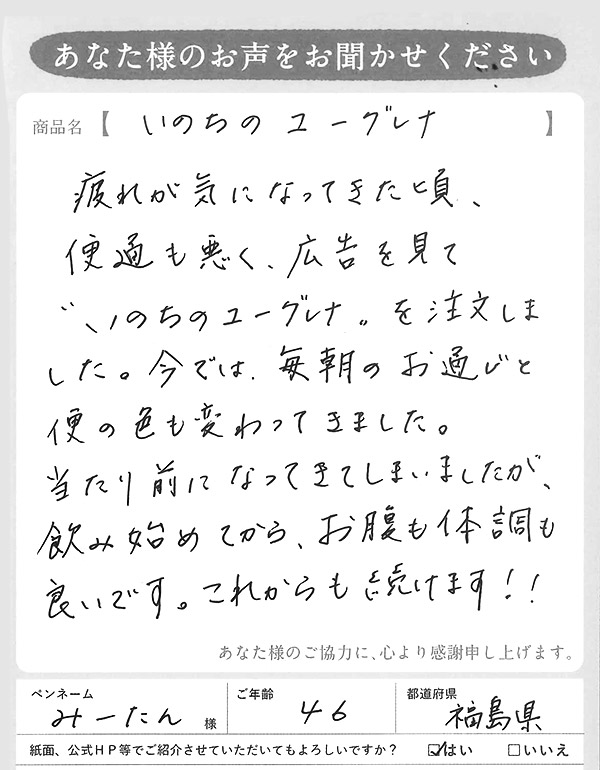 あなた様のお声をお聞かせください
商品名【 いのちの ユーグレナ 】
疲れが気になってきた頃、
便通も悪く、広告を見て
“いのちのユーグレナ”を注文しま
した。今では、毎朝のお通じと
便の色も変わってきました。
当たり前になってきてしまいましたが、
飲み始めてから、お腹も体調も
良いです。これからも続けます!!
あなた様のご協力に、心より感謝申し上げます。
ペンネーム みーたん 様 ご年齢 46 都道府県 福島県
紙面、公式HP等でご紹介させていただいてもよろしいですか? ☑はい □いいえ